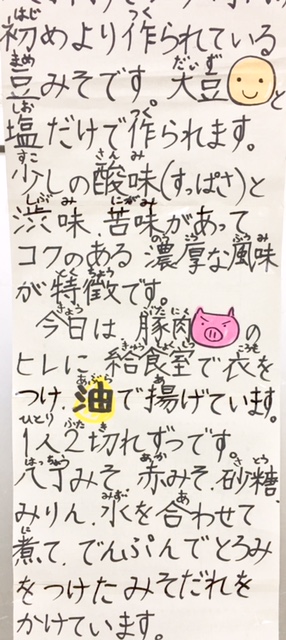 初めより作られている
豆みそです。大豆と
塩だけで作られます。
少しの酸味(すっぱさ)と
渋味、苦味があって
コクのある濃厚な風味
が特徴です。
今日は、豚肉の
ヒレに給食室で衣を
つけ、油で揚げています。
1人2切れずつです。
八丁みそ、赤みそ、砂糖、
みりん、水を合わせて
煮て、でんぷんでとろみ
をつけたみそだれを
かけています。